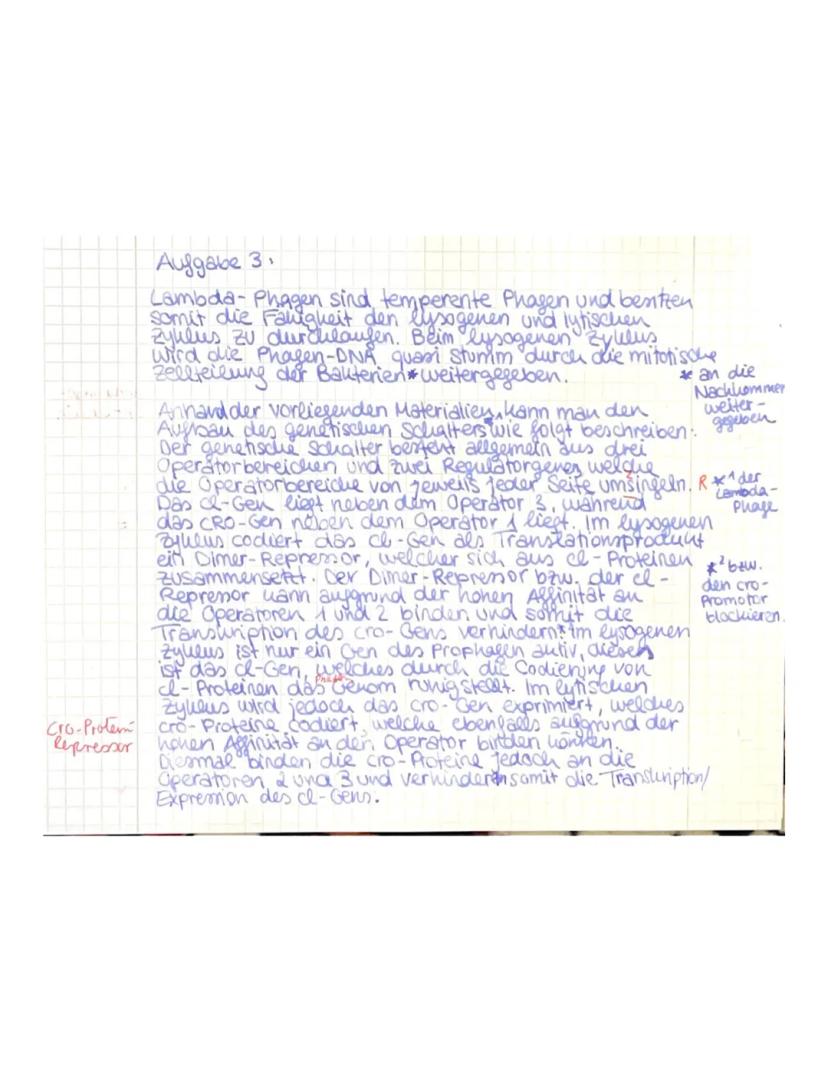 Aufgabe 3:
Lambda-Phagen sind temperente Phagen und besitzen
somit die Fähigkeit den lysogenen und lytischen
Zyklus zu durchlaufen. Beim lysogenen Zyklus
wird die Phagen-DNA quasi stumm durch die mitotische
Zellteilung der Bakterien* weitergegeben.
* an die
Nachkommen
weiter-
gegeben
Anhand der vorliegenden Materialien kann man den
Aufbau des genetischen Schalters wie folgt beschreiben:
Der genetische Schalter besteht allgemein aus drei
Operatorbereichen und zwei Regulatorgenen welche
die Operatorbereiche von jeweils jeder Seite umsingeln.
R *1 der
Lambda-
Phage
Das cl-Gen liegt neben dem Operator 3, während
das CRO-Gen neben dem Operator 1 liegt. Im lysogenen
Zyklus codiert das cl-Gen als Translationsprodukt
ein Dimer-Repressor, welcher sich aus cl-Proteinen
zusammensetzt. Der Dimer-Repressor bzw. der cl-
Repressor kann aufgrund der hohen Affinität an
die Operatoren 1 und 2 binden und somit die
Transkription des cro-Gens verhindern.* Im lysogenen
*2 bzw.
den cro-
Promotor
blockieren.
Zyklus ist nur ein Gen des Prophagen aktiv, dieses
ist das cl-Gen, welches durch die Codierung von
Phagen
cl-Proteinen das Genom ruhig stellt. Im lytischen
Zyklus wird jedoch das cro-Gen exprimiert, welches
cro-Proteine codiert, welche ebenfalls aufgrund der
Cro-Protein
Repressor
hohen Affinität an den Operator binden können.
Diesmal binden die cro-Proteine jedoch an die
Operatoren 2 und 3 und verhindern somit die Transkription/
Expression des cl-Gens.